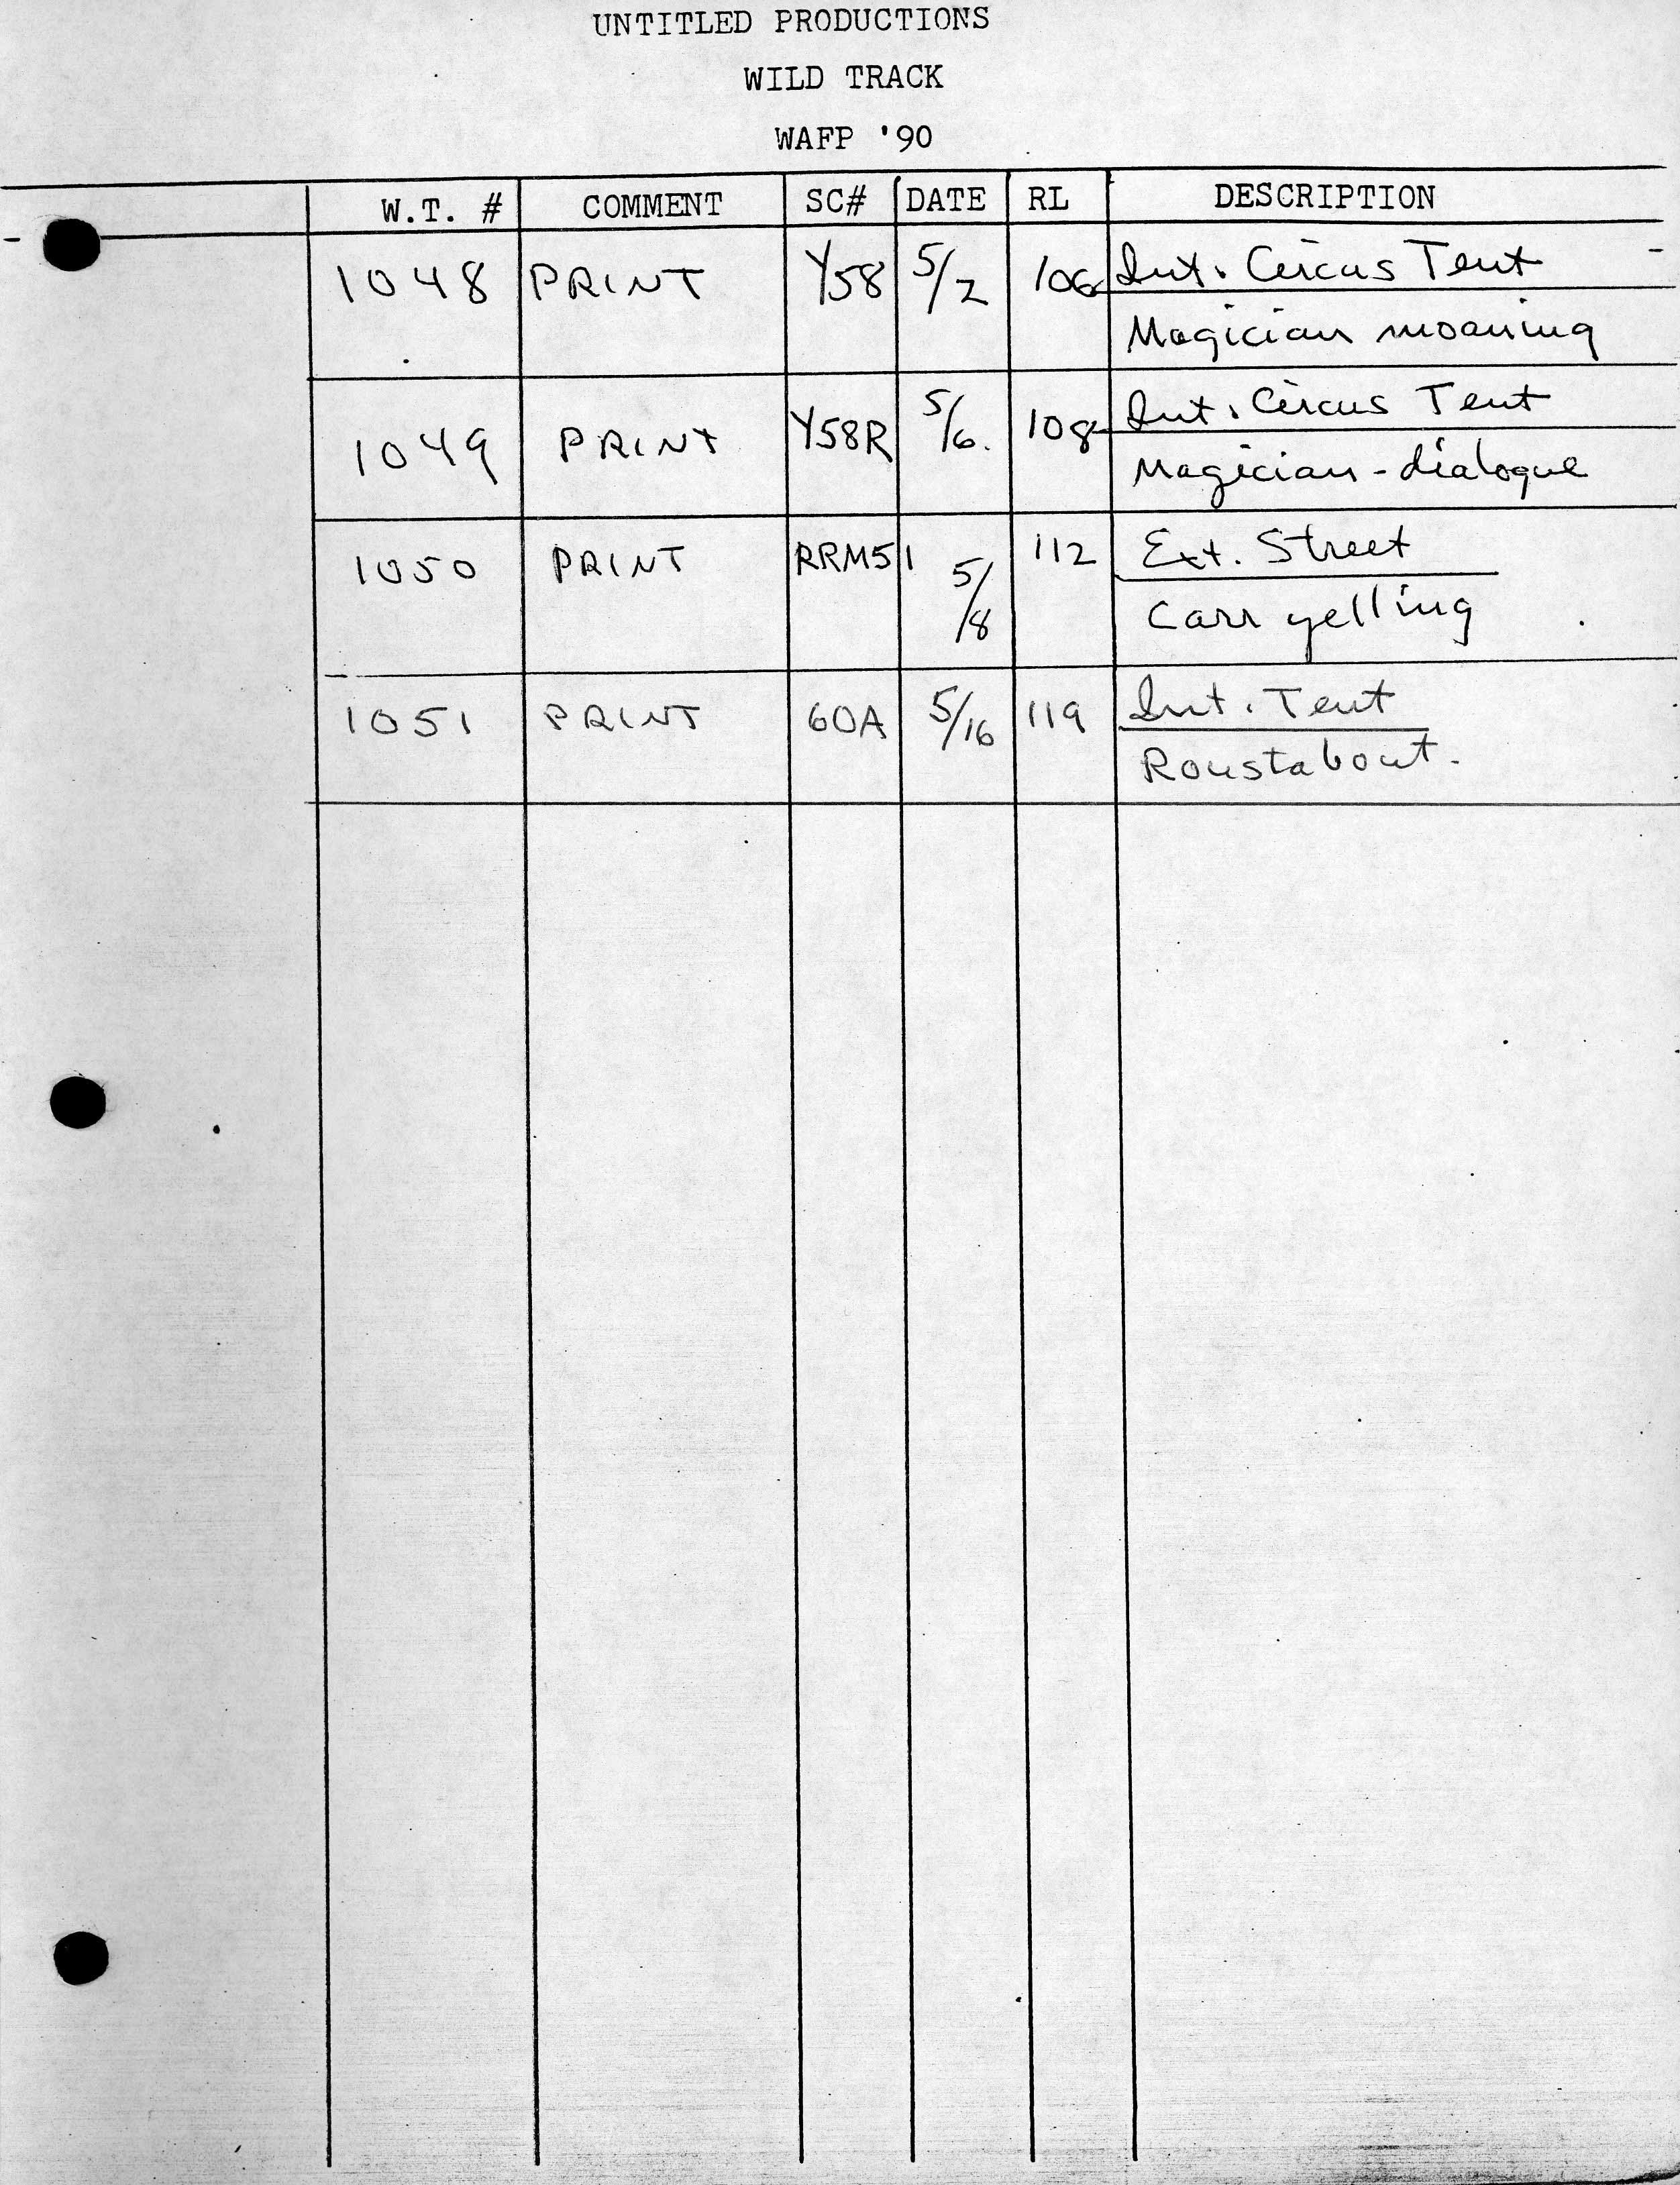 UNTITLED PRODUCTIONS
WILD TRACK
WAFP '90
W.T. # COMMENT SC# DATE RL DESCRIPTION
1048 PRINT Y58 5/2 106 Int. Circus Tent
Magician moaning
1049 PRINT Y58R 5/6. 108 Int. Circus Tent
Magician - dialogue
1050 PRINT RRM51 5/8 112 Ext. Street
Carr yelling
1051 PRINT 60A 5/16 119 Int. Tent
Roustabout.